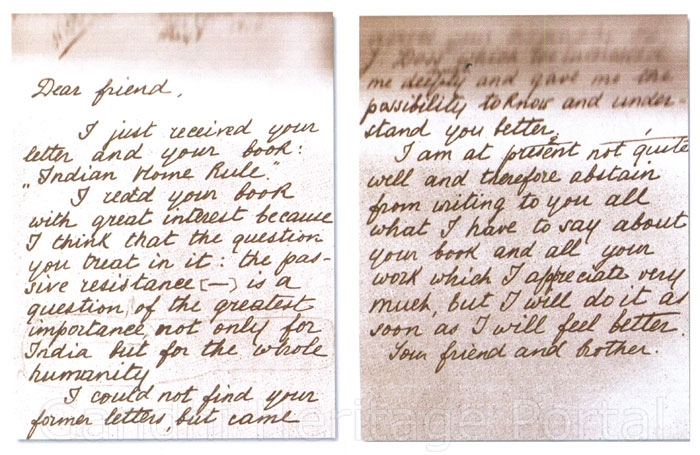 Dear friend,
I just received your
letter and your book:
„Indian Home Rule."
I read your book
with great interest because
I think that the question
you treat in it: the pas-
sive resistance [—] is a
question of the greatest
importance, not only for
India but for the whole
humanity
I could not find your
former letters, but came
me deeply and gave me the
possibility to know and under-
stand you better.
I am at present not quite
well and therefore abstain
from writing to you all
what I have to say about
your book and all your
work which I appreciate very
much, but I will do it as
soon as I will feel better.
Your friend and brother.
Gandhi Heritage Portal